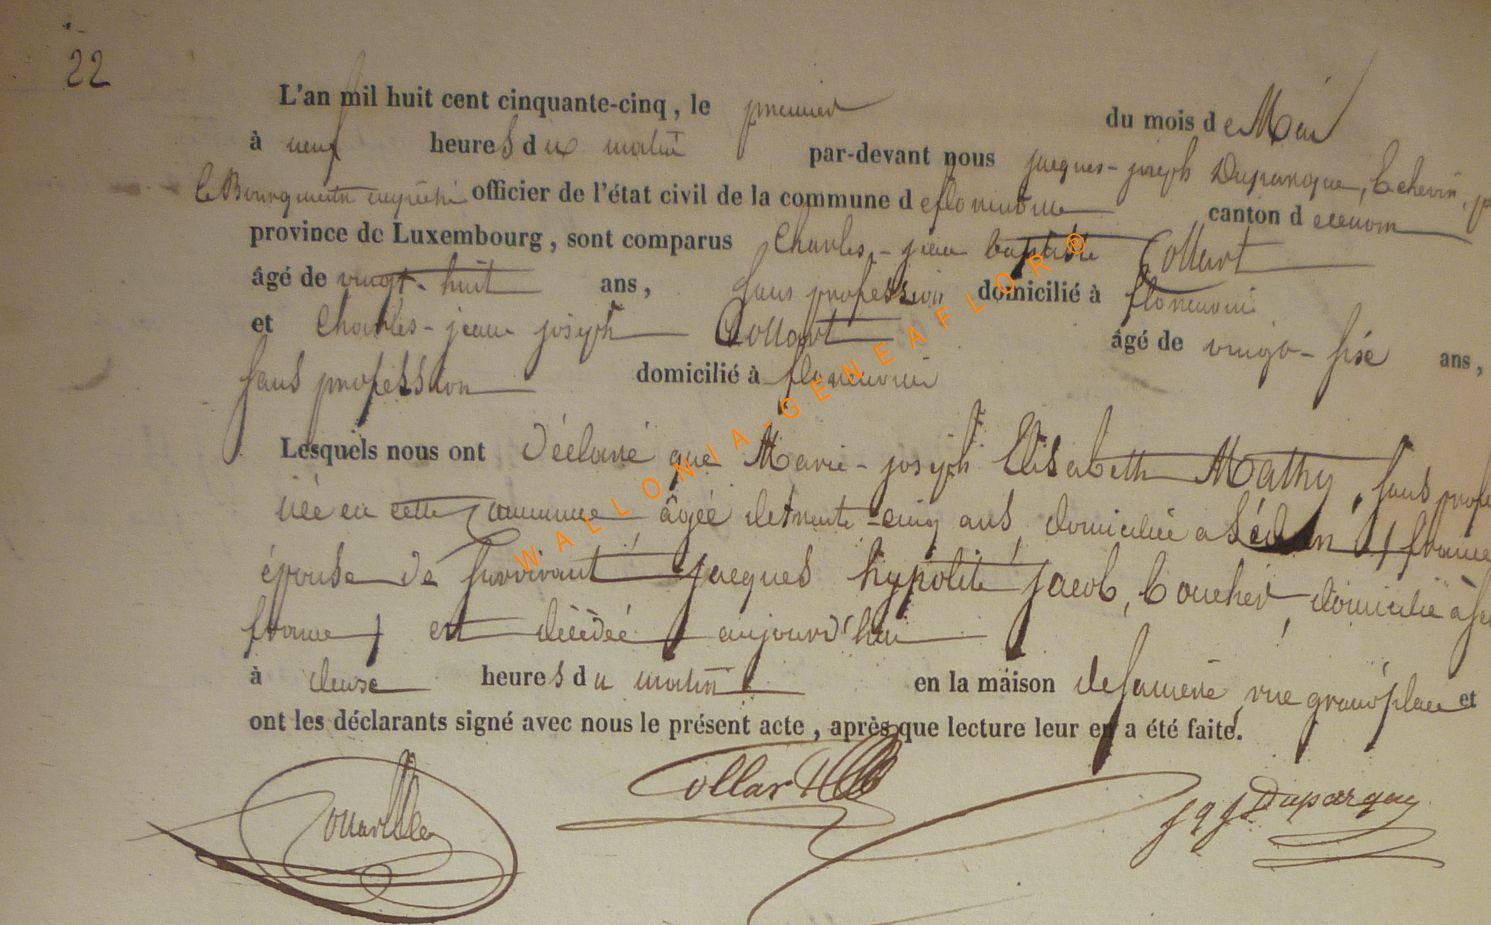 22
L'an mil huit cent cinquante-cinq, le premier du mois de Mai
à neuf heures du matin par-devant nous jacques-joseph Duparque, Echevin,
le Bourgmestre empêché officier de l'état civil de la commune de florenville canton de
province de Luxembourg, sont comparus Charles-jean baptiste Collart
âgé de vingt-huit ans, sans profession domicilié à florenville
et Charles-jean joseph Collart âgé de vingt-sise ans,
sans profession domicilié à florenville
Lesquels nous ont déclaré que Marie-joseph Elisabeth Mathy, sans profe
née en cette commune âgée de trente-cinq ans, domiciliée a Sédan (france
épouse de survivant jacques hypolite jacob, boucher, domicilié à
france) est décédée aujourd'hui
à deuse heures du matin en la maison de sa mère, rue grand'place et
ont les déclarants signé avec nous le présent acte, après que lecture leur en a été faite.
Collart
J J Duparque
WALLONIA-GENEAFLOR®